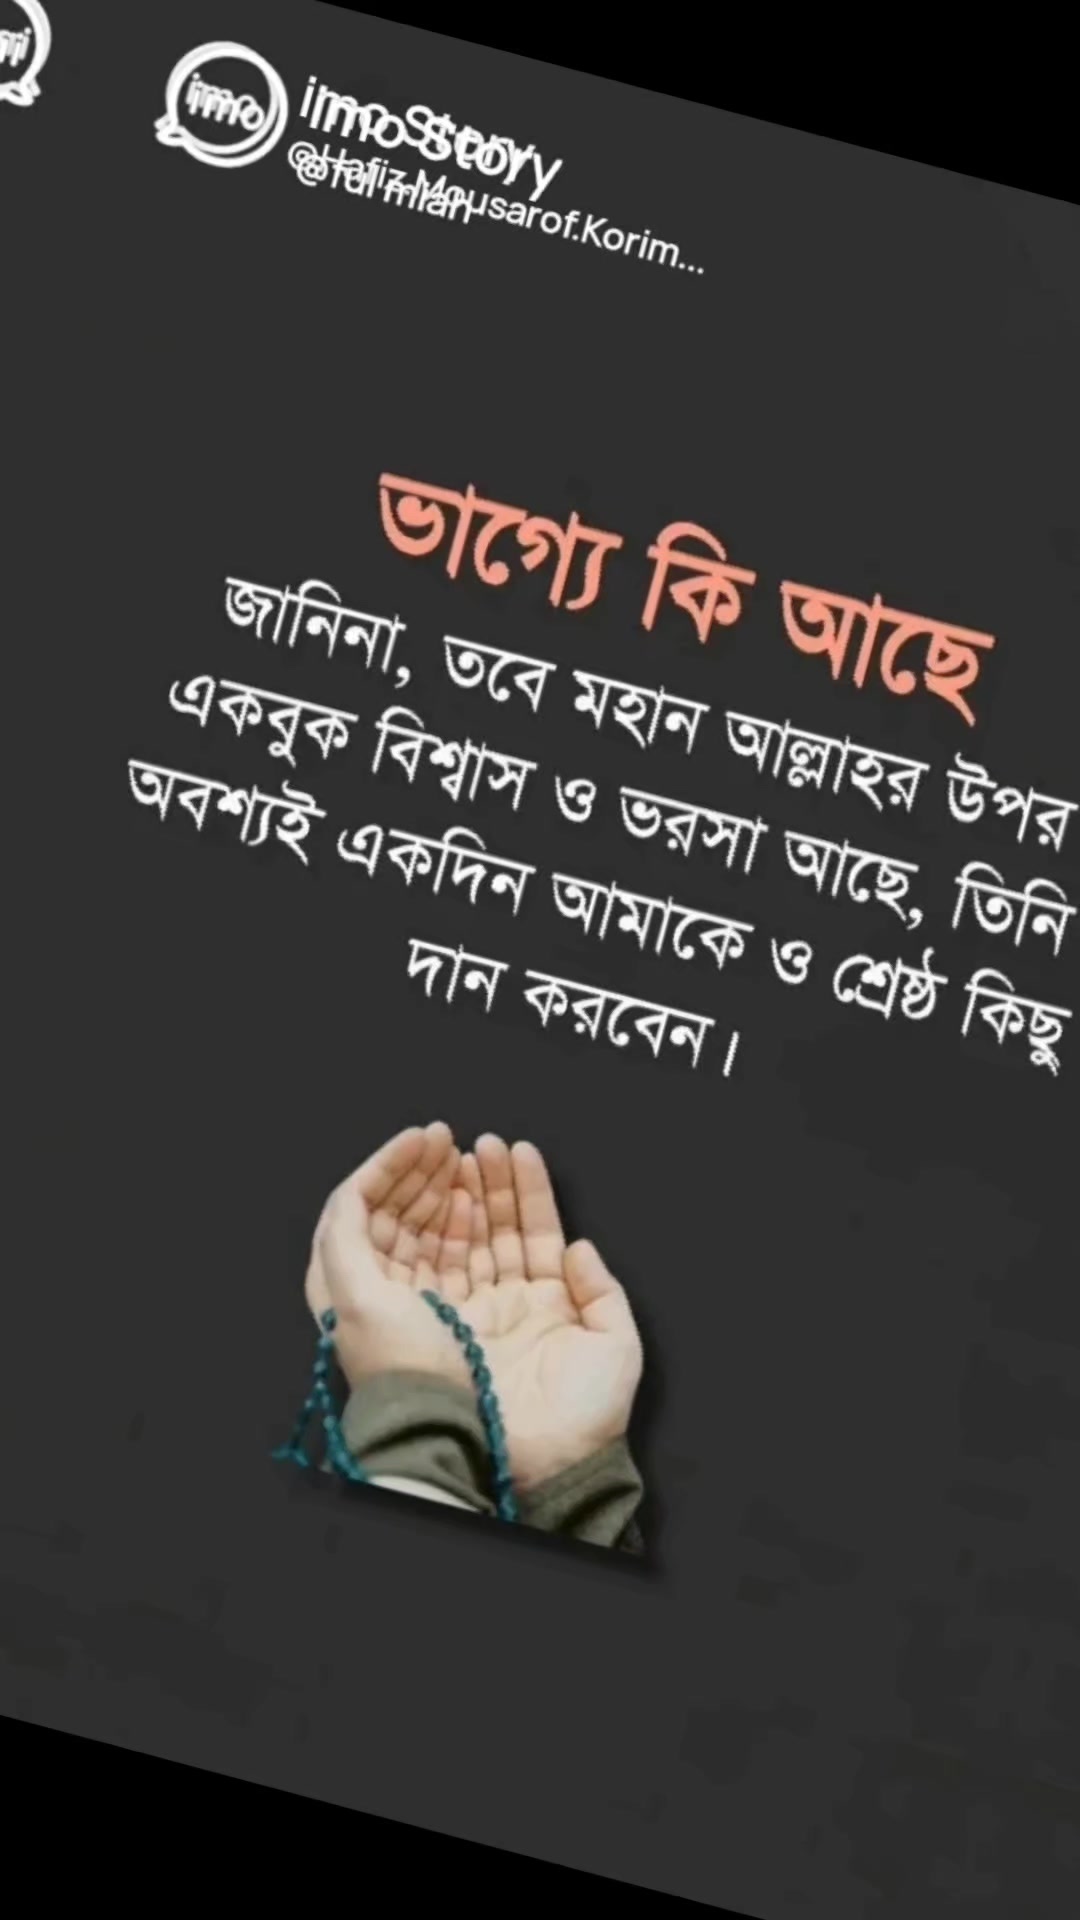 imo
imo Story
@Hafiz.Mousarof.Korim...
@ful mian
ভাগ্যে কি আছে
জানিনা, তবে মহান আল্লাহর উপর
একবুক বিশ্বাস ও ভরসা আছে, তিনি
অবশ্যই একদিন আমাকে ও শ্রেষ্ঠ কিছু
দান করবেন।